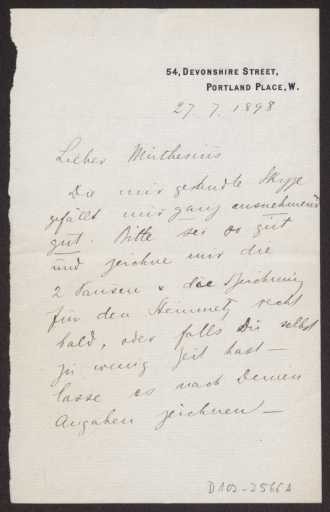 54, DEVONSHIRE STREET,
PORTLAND PLACE, W.
27. 7. 1898
Lieber Muthesius
Die mir gesandte Skizze
gefällt mir ganz ausnehmend
gut. Bitte sei so gut
und zeichne mir die
2 Vasen & die Zeichnung
für den Steinmetz recht
bald, oder falls Du selbst
zu wenig Zeit hast –
lasse es nach Deinen
Angaben zeichnen –
D 102-2566a